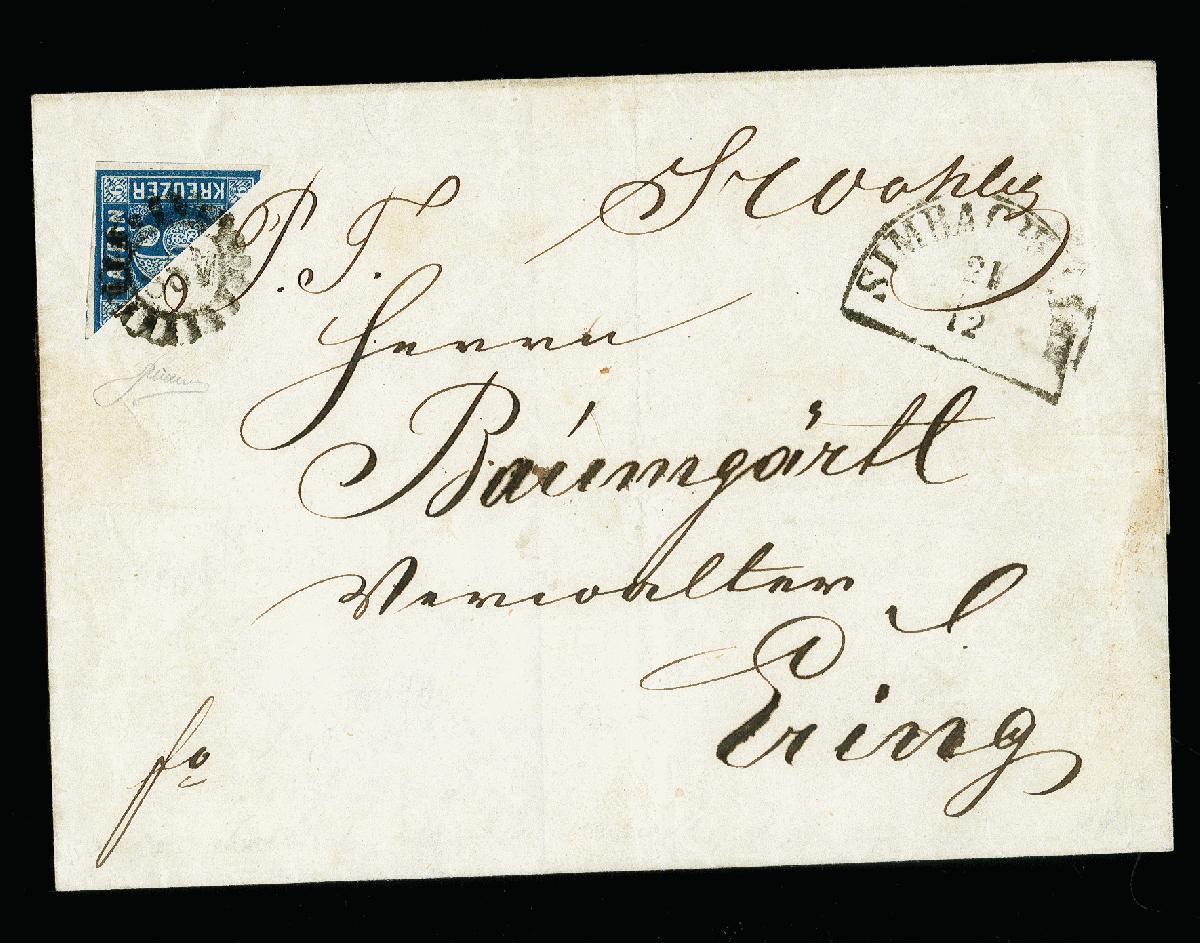 KREUZER
BAYERN
6
P. T.
SIMBACH
21
12
Herrn
Baumgärtl
Verwalter
Ering
fo